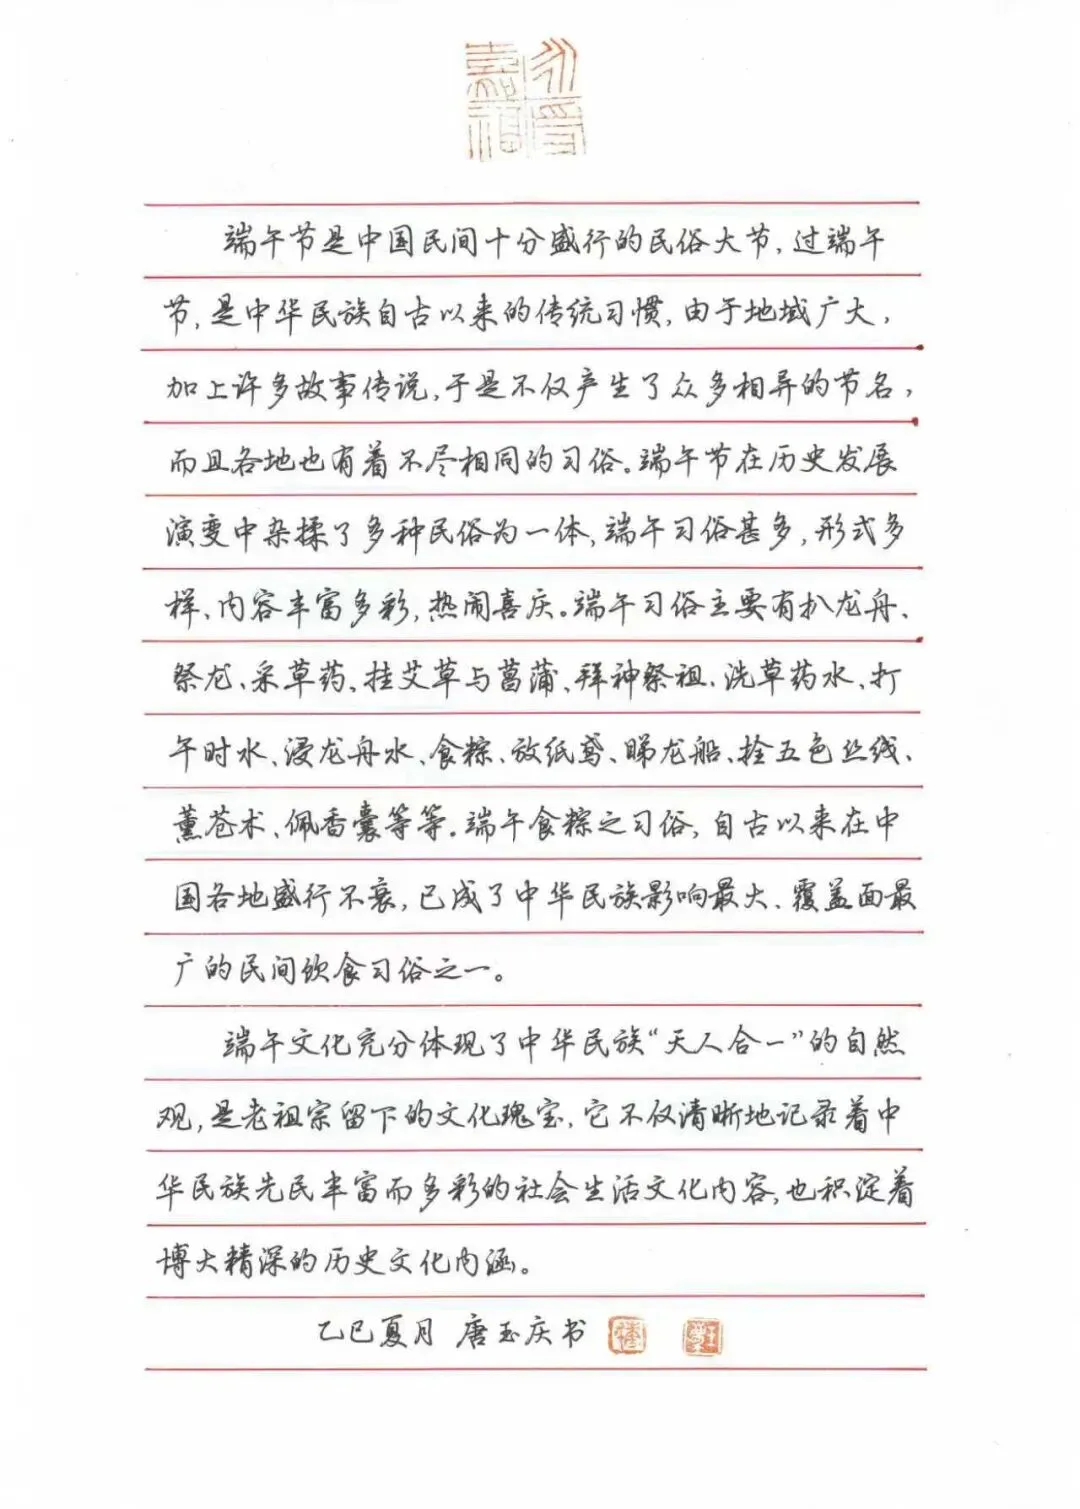 永受
嘉福
端午节是中国民间十分盛行的民俗大节，过端午
节，是中华民族自古以来的传统习惯，由于地域广大，
加上许多故事传说，于是不仅产生了众多相异的节名，
而且各地也有着不尽相同的习俗。端午节在历史发展
演变中杂揉了多种民俗为一体，端午习俗甚多，形式多
样、内容丰富多彩，热闹喜庆。端午习俗主要有扒龙舟、
祭龙、采草药、挂艾草与菖蒲、拜神祭祖、洗草药水、打
午时水、浸龙舟水、食粽、放纸鸢、睇龙船、拴五色丝线、
薰苍术、佩香囊等等。端午食粽之习俗，自古以来在中
国各地盛行不衰，已成了中华民族影响最大、覆盖面最
广的民间饮食习俗之一。
端午文化充分体现了中华民族“天人合一”的自然
观，是老祖宗留下的文化瑰宝，它不仅清晰地记录着中
华民族先民丰富而多彩的社会生活文化内容，也积淀着
博大精深的历史文化内涵。
乙巳夏月 唐玉庆书